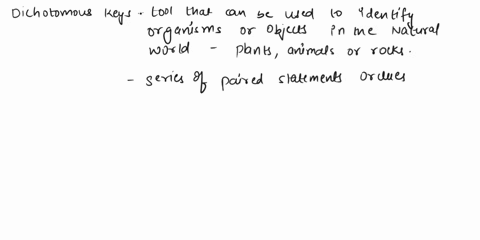 Dichotomous keys - tool that can be used to identify
organisms or objects in the Natural
world - plants, animals or rocks.
- series of paired statements or clues